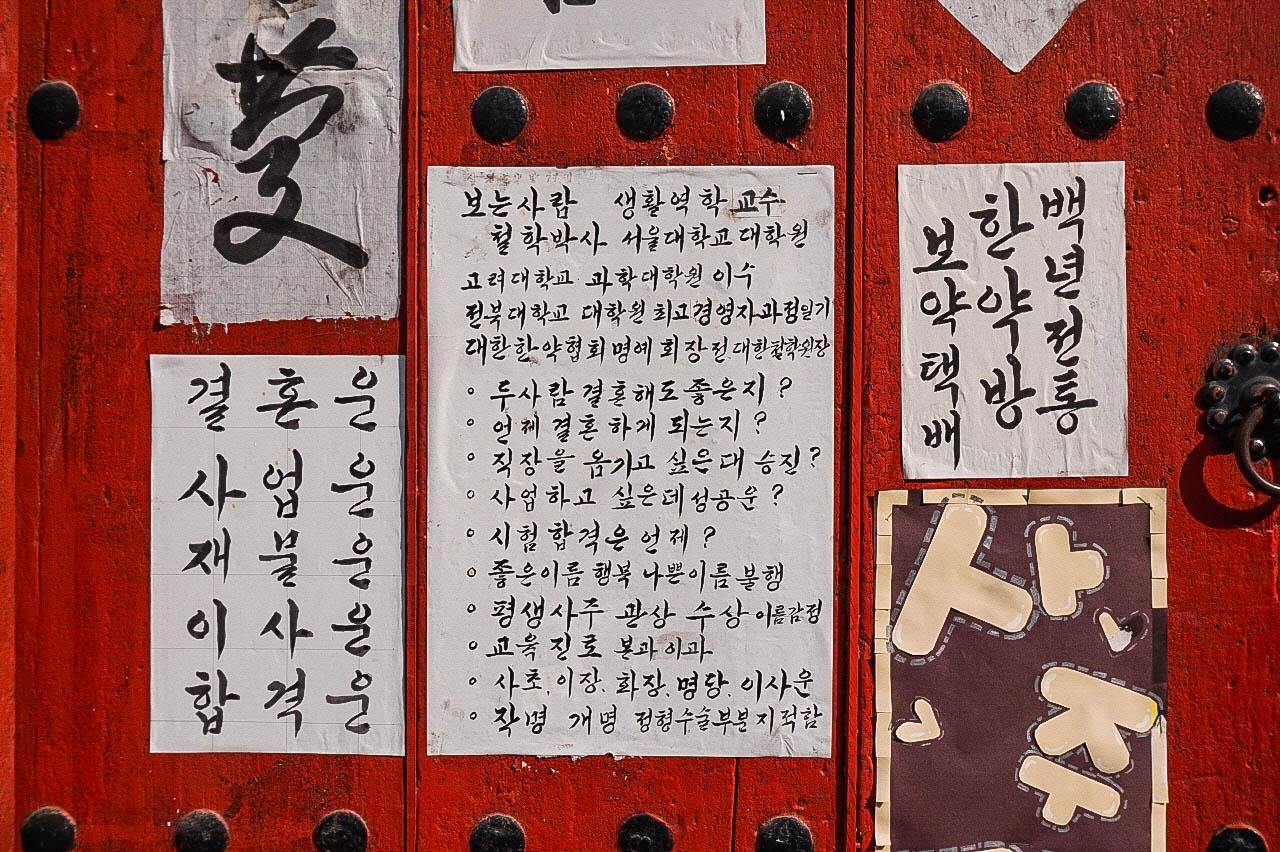 결혼운
사업운
재물운
이사운
합격운
보는사람 생활역학 교수
철학박사 서울대학교대학원
고려대학교 과학대학원 이수
전북대학교 대학원 최고경영자과정일기
대한한약협회명예회장전대한철학원장
◦ 두사람 결혼해도좋은지?
◦ 언제결혼하게 되는지?
◦ 직장을 옴기고 싶은대 승진?
◦ 사업하고 싶은데성공운?
◦ 시험합격은언제?
◦ 좋은이름행복 나쁜이름불행
◦ 평생사주 관상 수상이름감정
◦ 교육진로 문과이과
◦ 사초.이장.화장.명당.이사운
◦ 작명 개명 정형수술부분지적함
백년전통
한약방
보약택배
사주